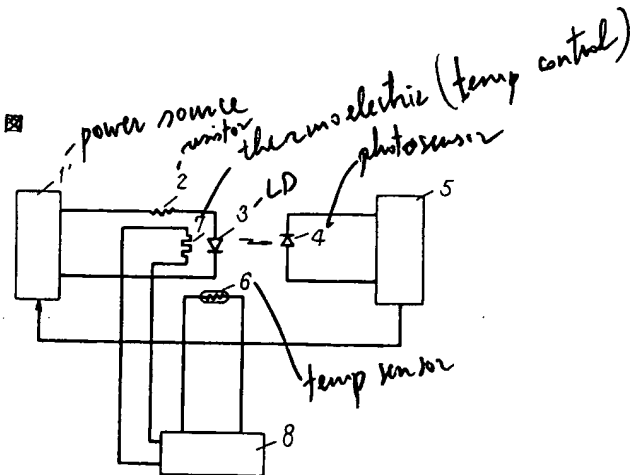 図
power source
resistor
thermoelectric (temp control)
photosensor
1
2
LD
3
7
4
5
6
temp sensor
8